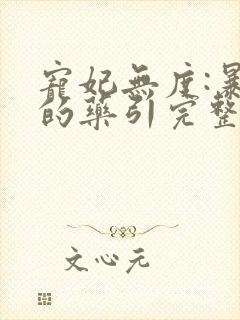 寵妃無度:暴
的藥引完整
文心元